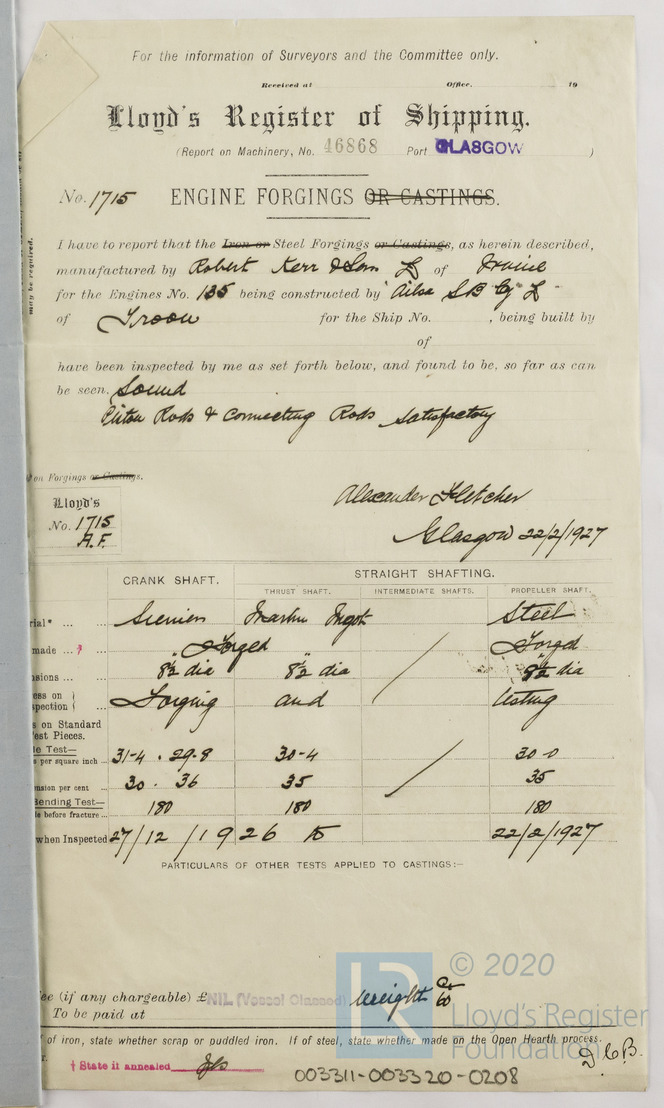 For the information of Surveyors and the Committee only.
Received at Office. 19
Lloyd's Register of Shipping.
(Report on Machinery, No. 46868 Port GLASGOW )
No. 1715 ENGINE FORGINGS OR CASTINGS.
may be required.
I have to report that the Iron or Steel Forgings or Castings, as herein described,
manufactured by Robert Kerr & Son Ld of Irvine
for the Engines No. 135 being constructed by Ailsa SB Cy Ld
of Troon for the Ship No. , being built by
of
have been inspected by me as set forth below, and found to be, so far as can
be seen, Sound
Piston Rods & Connecting Rods Satisfactory
on Forgings or Castings.
Lloyd's
No. 1715
A.F.
Alexander Fletcher
Glasgow 22/2/1927
CRANK SHAFT. STRAIGHT SHAFTING.
THRUST SHAFT. INTERMEDIATE SHAFTS. PROPELLER SHAFT.
rial* ... ... Siemens Martin Ingot Steel
made ... † Forged Forged
sions ... 8½" dia 8½" dia 9½" dia
ess on
spection Forging and testing
s on Standard
Test Pieces.
le Test—
s per square inch ... 31-4 . 29-8 30-4 30-0
nsion per cent ... 30 . 36 35 35
Bending Test—
le before fracture ... 180 180 180
when Inspected 27/12/1926 to 22/2/1927
PARTICULARS OF OTHER TESTS APPLIED TO CASTINGS:—
© 2020
Lloyd's Register
Foundation
ee (if any chargeable) £ NIL (Vessel Classed) weight 60
To be paid at
of iron, state whether scrap or puddled iron. If of steel, state whether made on the Open Hearth process.
r.
† State if annealed
D.C.B.
003311-003320-0208